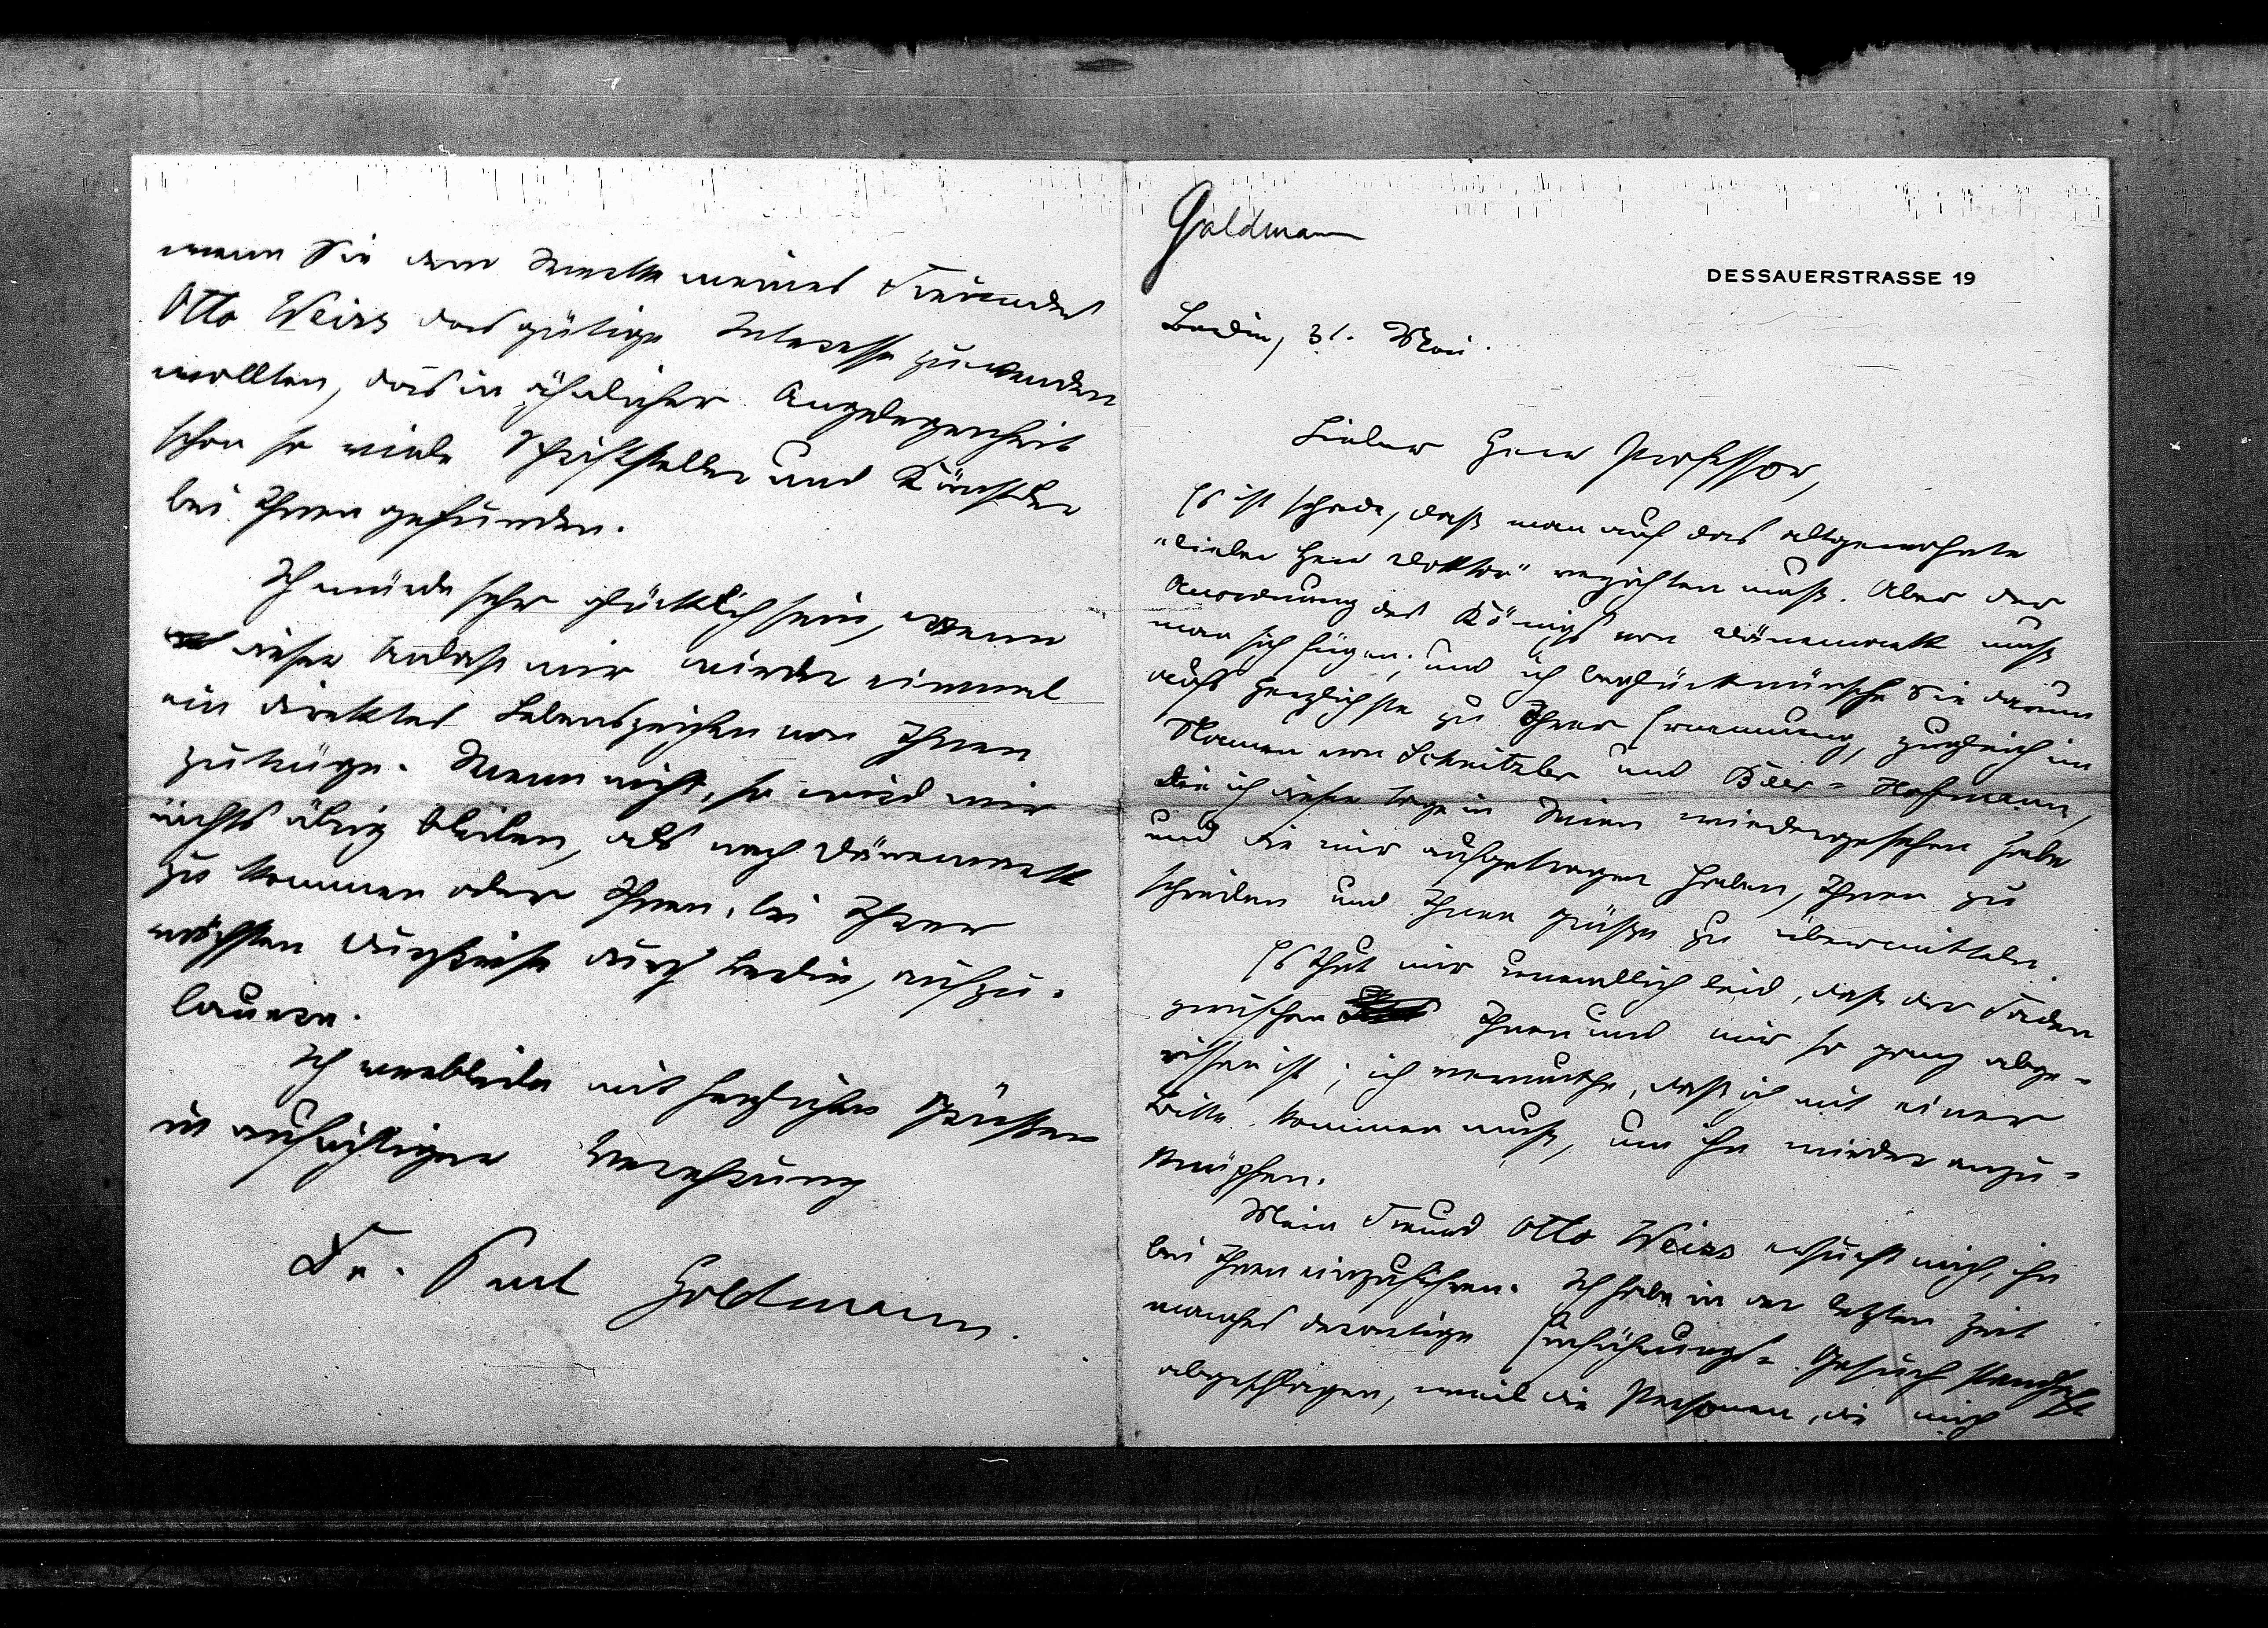 Goldmann
DESSAUERSTRASSE 19
Berlin, 31. Mai.
Lieber Herr Professor,
Es ist schade, daß man auf das altgewohnte
„lieber Herr Doktor" verzichten muß. Aber der
Anordnung des Königs von Dänemark muß
man sich fügen; und ich beglückwünsche Sie darum
aufs herzlichste zu Ihrer Ernennung, zugleich im
Namen von Schnitzler und Beer-Hofmann,
die ich dieser Tage in Wien wiedergesehen habe
und die mir aufgetragen haben, Ihnen zu
schreiben und Ihnen Grüße zu übermitteln.
Es thut mir unendlich leid, daß der Faden
zwischen Ihnen und mir so ganz abge-
rissen ist; ich vermuthe, daß ich mit einer
Bitte kommen muß, um ihn wieder anzu-
knüpfen.
Mein Freund Otto Weiss ersucht mich, ihn
bei Ihnen einzuführen. Ich habe in der letzten Zeit
manches derartige Einführungs-Gesuch standhaft
abgeschlagen, weil die Personen, die mich
wenn Sie dem Werke meines Freundes
Otto Weiss das gütige Interesse zuwenden
wollten, das in ähnlicher Angelegenheit
schon so viele Schriftsteller und Künstler
bei Ihnen gefunden.
Ich würde sehr glücklich sein, wenn
dieser Anlaß mir wieder einmal
ein direktes Lebenszeichen von Ihnen
zutrüge. Wenn nicht, so wird mir
nichts übrig bleiben, als nach Dänemark
zu kommen oder Ihnen, bei Ihrer
nächsten Durchreise durch Berlin, aufzu-
lauern.
Ich verbleibe mit herzlichen Grüßen
in aufrichtiger Verehrung
Dr. Paul Goldmann.